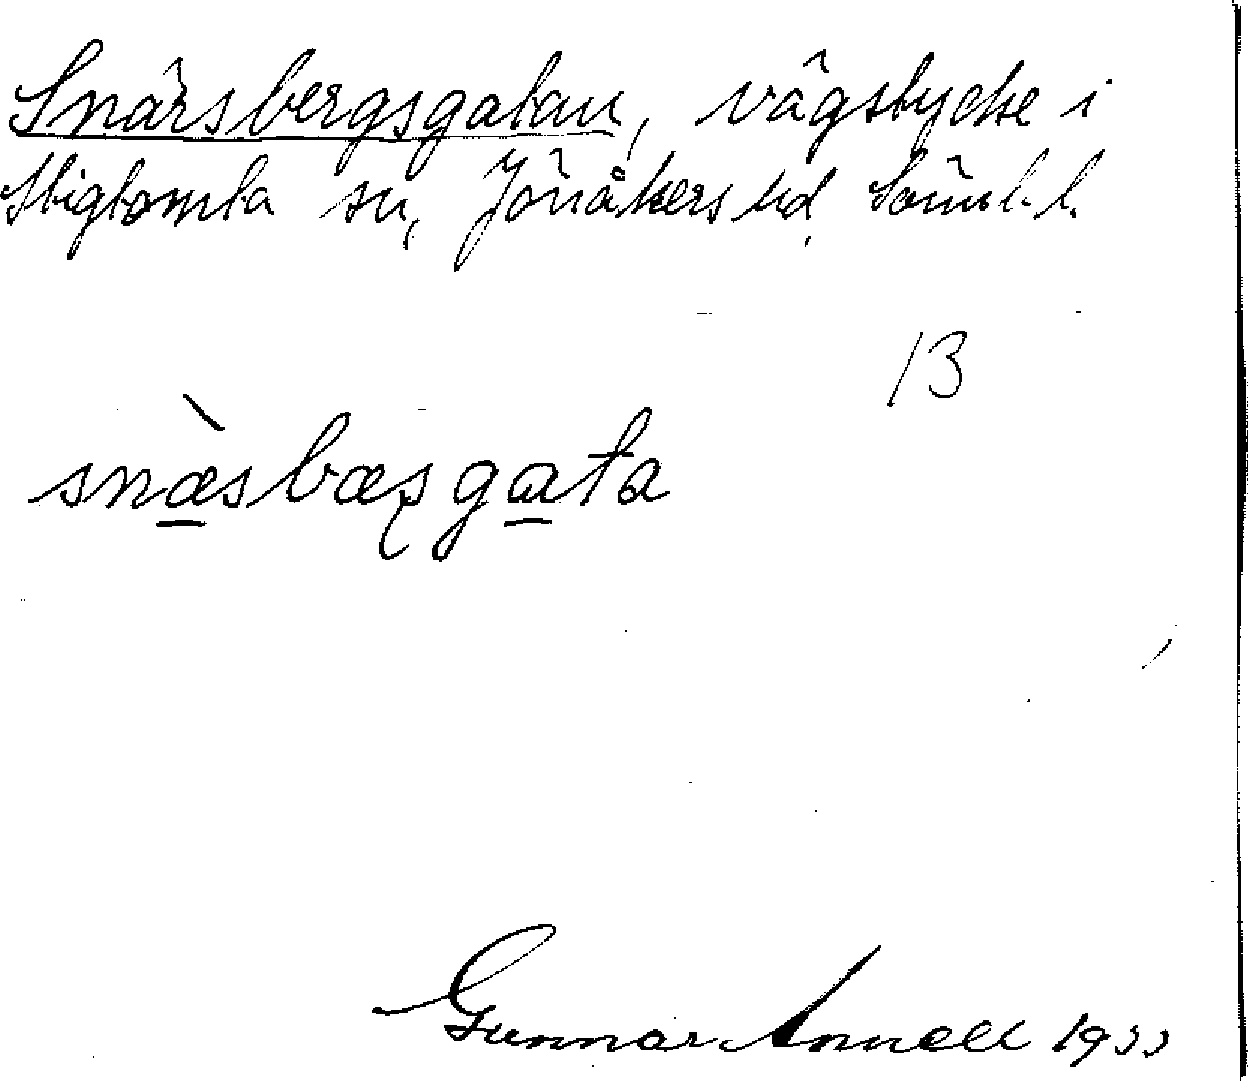 Snärsbergsgatan, vägstycke i
Stigtomta sn, Jönåkers hd, Söml. l.
13
snæ̀sbæʂgata
Gunnar Annell 1933